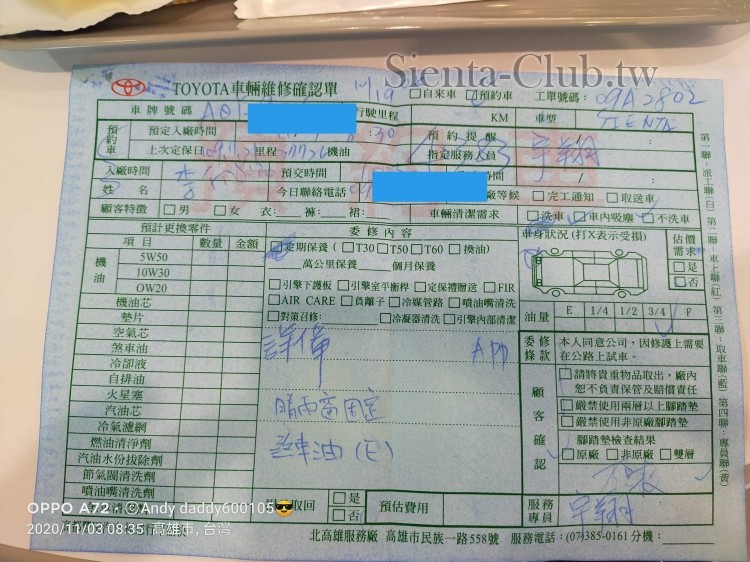 Sienta-Club.tw
TOYOTA車輛維修確認單 □自來車 □預約車 工單號碼: 09A2802
車牌號碼 行駛里程 KM 車型 SIENTA
預約車 預定入廠時間 :30 預約提醒 / :
上次定保日 里程 機油 指定服務人員 宇翔
入廠時間 預交時間 / :
姓名 今日聯絡電話 廠等候 □完工通知 □取送車
顧客特徵 □男 □女 衣: 褲: 裙: 車輛清潔需求 □洗車 □車內吸塵 □不洗車
預計更換零件
項目 數量 金額
機油 5W50
10W30
OW20
機油芯
墊片
空氣芯
煞車油
冷卻液
自排油
火星塞
汽油芯
冷氣濾網
燃油清淨劑
汽油水份拔除劑
節氣閥清洗劑
噴油嘴清洗劑
委修內容
□定期保養(□T30□T50□T60 □換油)
萬公里保養 個月保養
□引擎下護板□引擎室平衡桿□定保禮贈送□FIR
□AIR CARE□負離子□冷媒管路□噴油嘴清洗
□對策召修: □冷凝器清洗□引擎內部清潔
APP
晴雨窗固定
煞車油(E)
取回 □是 □否 預估費用
車身狀況(打X表示受損) 估價需求 □是 □否
油量 E 1/4 1/2 3/4 F
委修條款 本人同意公司,因修護上需要在公路上試車.
顧客確認
□請將貴重物品取出,廠內恕不負責保管及賠償責任
□嚴禁使用兩層以上腳踏墊
□嚴禁使用非原廠腳踏墊
腳踏墊檢查結果
□原廠 □非原廠 □雙層
服務專員 宇翔
第一聯:派工聯(白) 第二聯:車上聯(紅) 第三聯:取車聯(藍) 第四聯:專員聯(黃)
北高雄服務廠 高雄市民族一路558號 服務電話:(07)385-0161分機:
OPPO A72 ©Andy daddy600105😎
2020/11/03 08:35 高雄市, 台灣